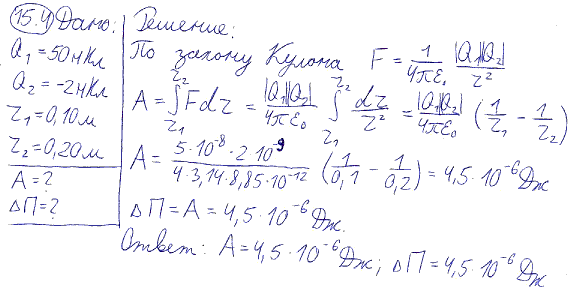 15.4 Дано:
Q₁ = 50 нКл
Q₂ = -2 нКл
r₁ = 0,10 м
r₂ = 0,20 м
A = ?
ΔП = ?
Решение:
По закону Кулона F = 1/(4πε₀) |Q₁||Q₂|/r²
A = ∫_{r₁}^{r₂} Fdr = |Q₁||Q₂|/(4πε₀) ∫_{r₁}^{r₂} dr/r² = |Q₁||Q₂|/(4πε₀) (1/r₁ - 1/r₂)
A = (5·10⁻⁸·2 10⁻⁹)/(4·3,14·8,85·10⁻¹²) (1/0,1 - 1/0,2) = 4,5·10⁻⁶ Дж
ΔП = A = 4,5·10⁻⁶ Дж.
Ответ: A = 4,5·10⁻⁶ Дж; ΔП = 4,5·10⁻⁶ Дж